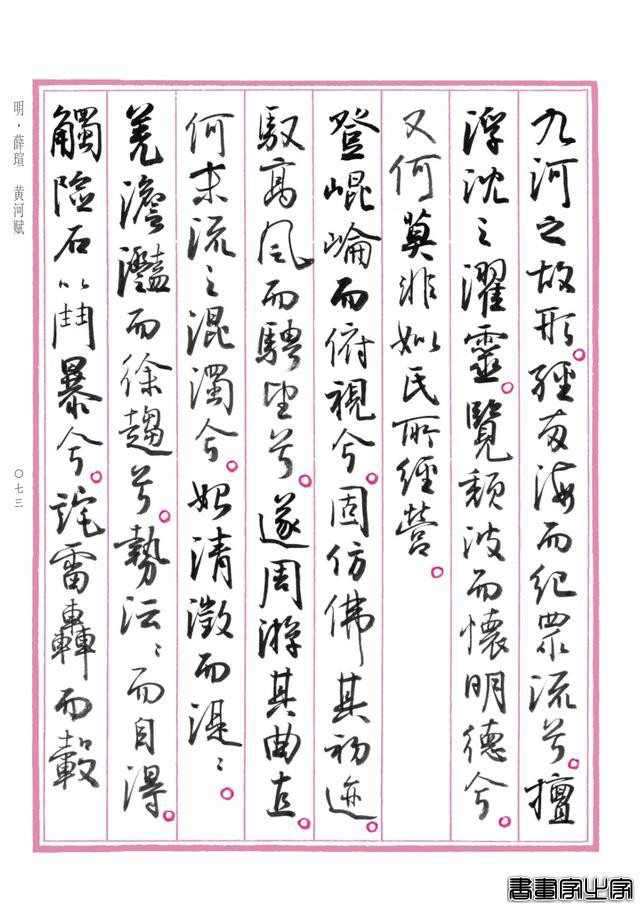 九河之故形。經海而紀眾流兮。擅
浮沈之濯靈。覽頹波而懷明德兮。
又何莫非民所經營。
登崐崘而俯視兮。固仿佛其初迹。
馭高風而騁望兮。遂周游其曲直。
何末流之混濁兮。始清澂而湜〻。
羌澹灩而徐趨兮。勢沄〻而自得。
觸險石以鬥暴兮。詫雷轟而轂
明·薛瑄 黄河赋
〇七三